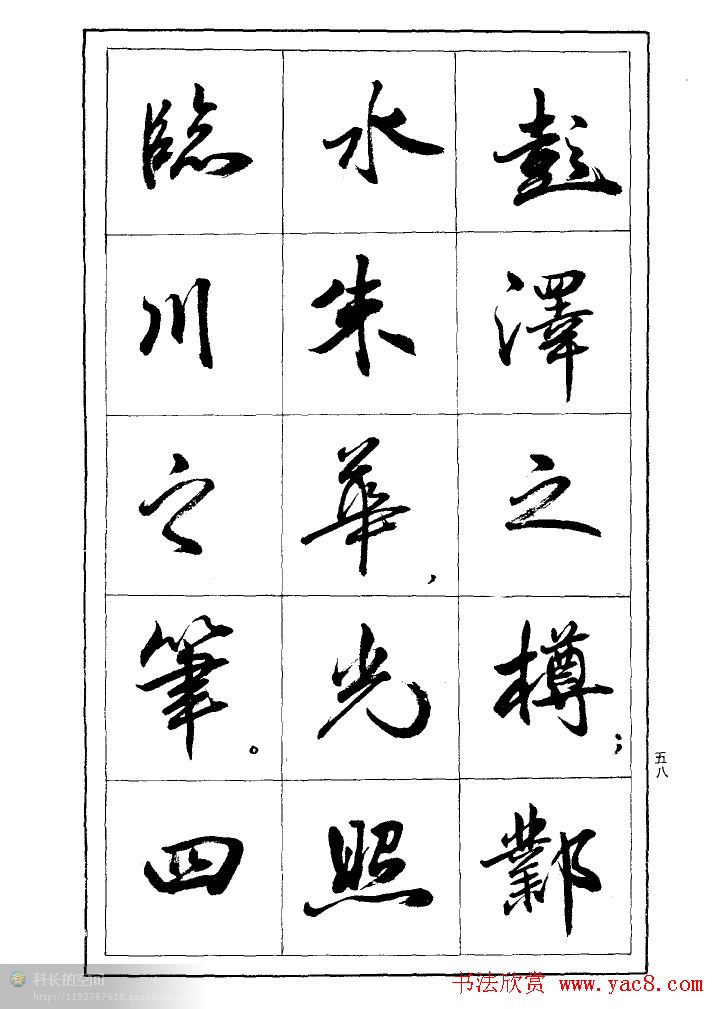 彭澤之樽；鄴
水朱華，光照
臨川之筆。四
五八
科长的空间
http://1193767618.qzone.qq.com
书法欣赏 www.yac8.com